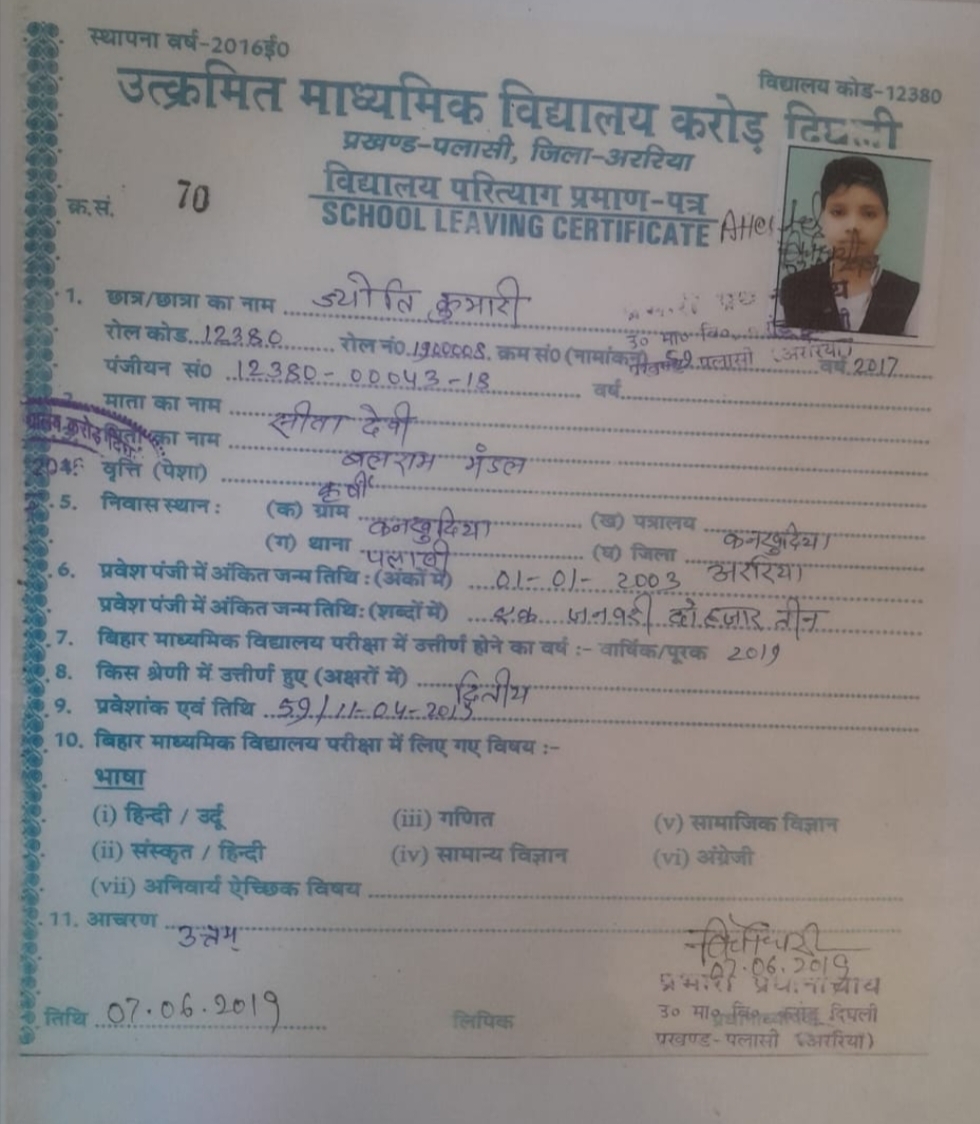 स्थापना वर्ष-2016ई0
विद्यालय कोड-12380
उत्क्रमित माध्यमिक विद्यालय करोड़ दिघली
प्रखण्ड-पलासी, जिला-अररिया
विद्यालय परित्याग प्रमाण-पत्र
क्र.सं. 70
SCHOOL LEAVING CERTIFICATE
1. छात्र/छात्रा का नाम ज्योति कुमारी
रोल कोड 12380 रोल नं0 1900008 क्रम सं0 (नामांकन) वर्ष 2017
उ० मा० वि०
पलासी (अररिया)
पंजीयन सं0 12380-00043-18 वर्ष
माता का नाम सीता देवी
का नाम बलराम मंडल
वृत्ति (पेशा) कृषी
5. निवास स्थान : (क) ग्राम कनखुदिया (ख) पत्रालय कनखुदिया
(ग) थाना पलासी (घ) जिला अररिया
6. प्रवेश पंजी में अंकित जन्म तिथि : (अंकों में) 01-01-2003
प्रवेश पंजी में अंकित जन्म तिथि: (शब्दों में) एक जनवरी दो हजार तीन
7. बिहार माध्यमिक विद्यालय परीक्षा में उत्तीर्ण होने का वर्ष :- वार्षिक/पूरक 2019
8. किस श्रेणी में उत्तीर्ण हुए (अक्षरों में) द्वितीय
9. प्रवेशांक एवं तिथि 59/11-04-
10. बिहार माध्यमिक विद्यालय परीक्षा में लिए गए विषय :-
भाषा
(i) हिन्दी / उर्दू (iii) गणित (v) सामाजिक विज्ञान
(ii) संस्कृत / हिन्दी (iv) सामान्य विज्ञान (vi) अंग्रेजी
(vii) अनिवार्य ऐच्छिक विषय
11. आचरण उत्तम
07.06.2019
प्रभारी प्रधानाध्यापक
तिथि 07.06.2019 लिपिक
उ० मा० वि० करोड़ दिघली
प्रखण्ड-पलासी (अररिया)